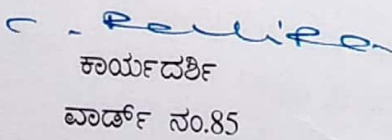 ಕಾರ್ಯದರ್ಶಿ
ವಾರ್ಡ್ ನಂ.85